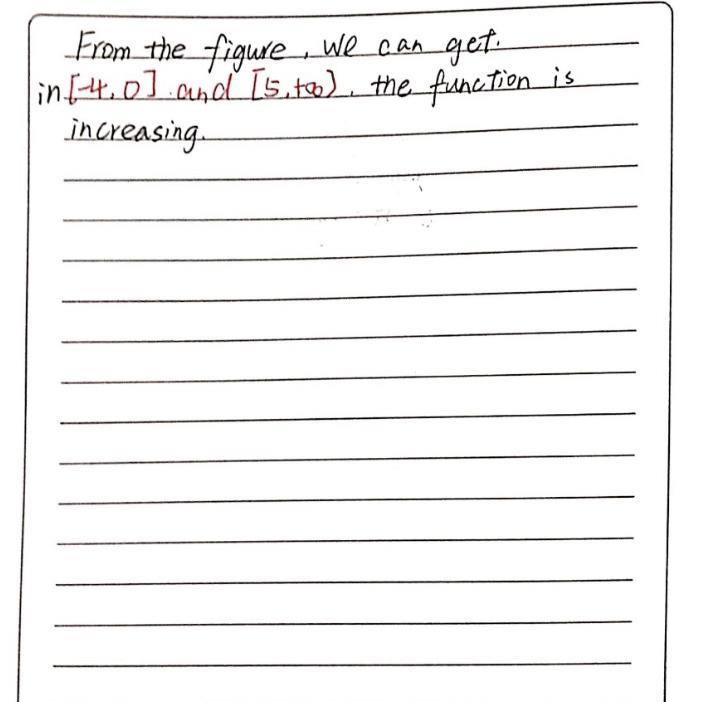 From the figure, we can get.
in [-4,0] and [5,+∞), the function is
increasing.